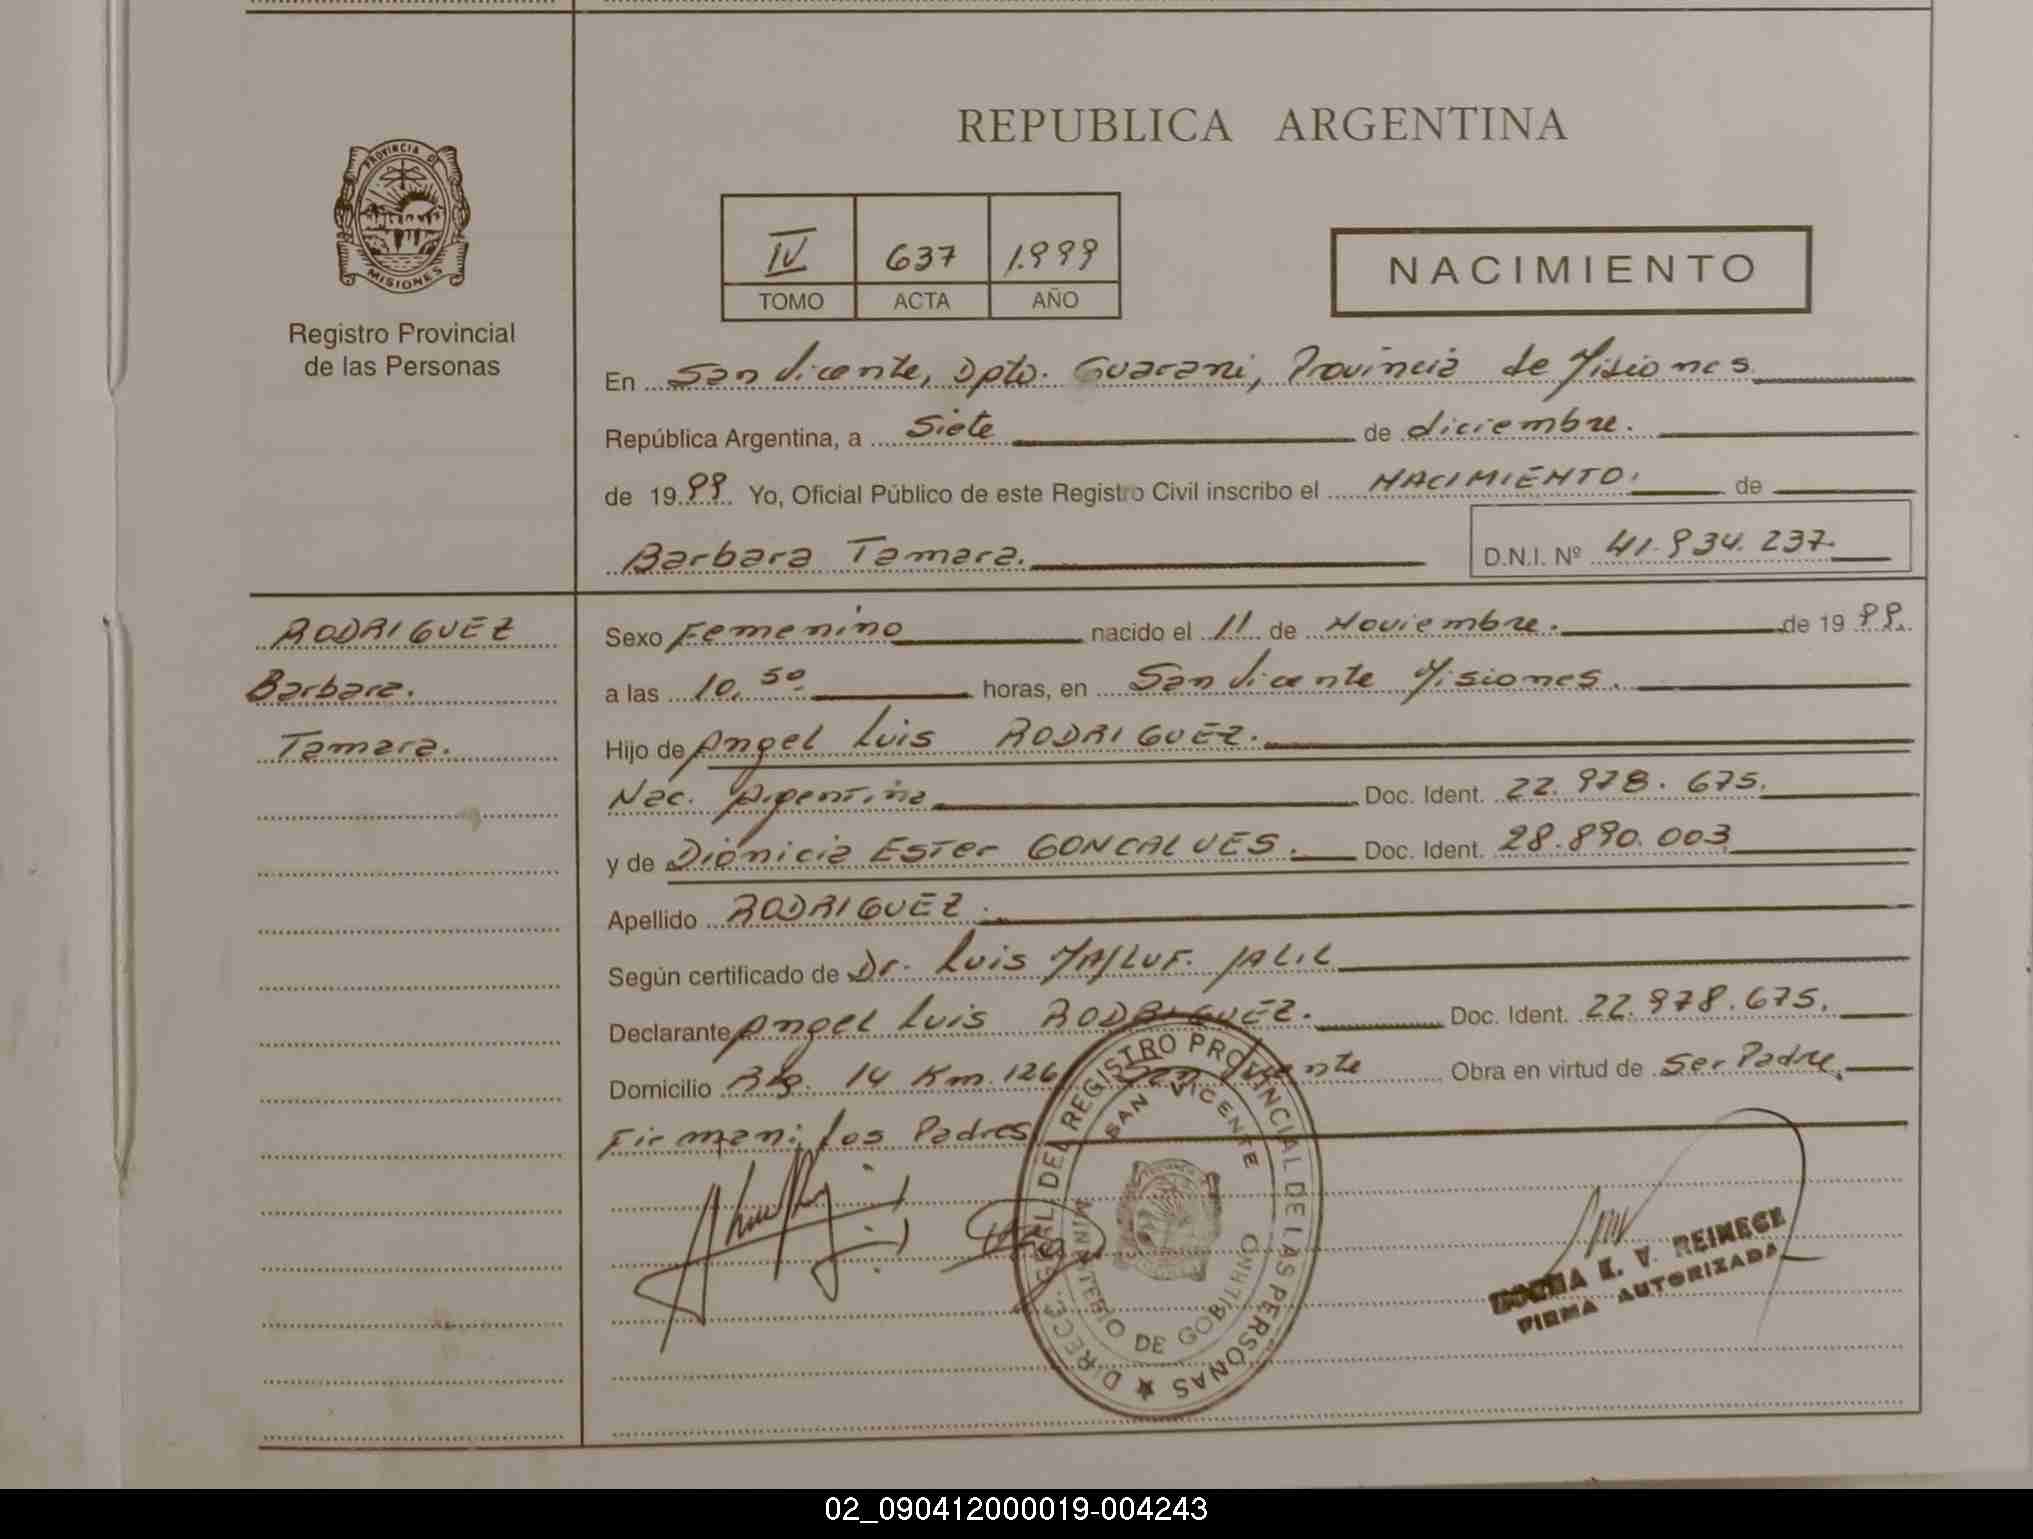 REPUBLICA ARGENTINA
PROVINCIA DE
MISIONES
Registro Provincial
de las Personas
IV 637 1.999
TOMO ACTA AÑO
NACIMIENTO
En San Vicente, Dpto. Guarani, Provincia de Misiones
República Argentina, a Siete de diciembre.
de 1999 Yo, Oficial Público de este Registro Civil inscribo el NACIMIENTO. de
Barbara Tamara. D.N.I. Nº 41.934.237.
RODRIGUEZ
Barbara.
Tamara.
Sexo Femenino nacido el 11 de Noviembre. de 1999.
a las 10.50 horas, en San Vicente Misiones.
Hijo de Angel Luis RODRIGUEZ.
Nac. Argentina Doc. Ident. 22.978.675.
y de Dionicia Ester GONCALVES. Doc. Ident. 28.890.003
Apellido RODRIGUEZ.
Según certificado de Dr. Luis JALIL
Declarante Angel Luis RODRIGUEZ. Doc. Ident. 22.978.675.
Domicilio 14 Km. 126 San Vicente Obra en virtud de Ser Padre.
Firman: los Padres
DIREC. GRAL. DEL REGISTRO PROVINCIAL DE LAS PERSONAS
SAN VICENTE
MINISTERIO DE GOBIERNO
E. V. REINECK
FIRMA AUTORIZADA
02_090412000019-004243